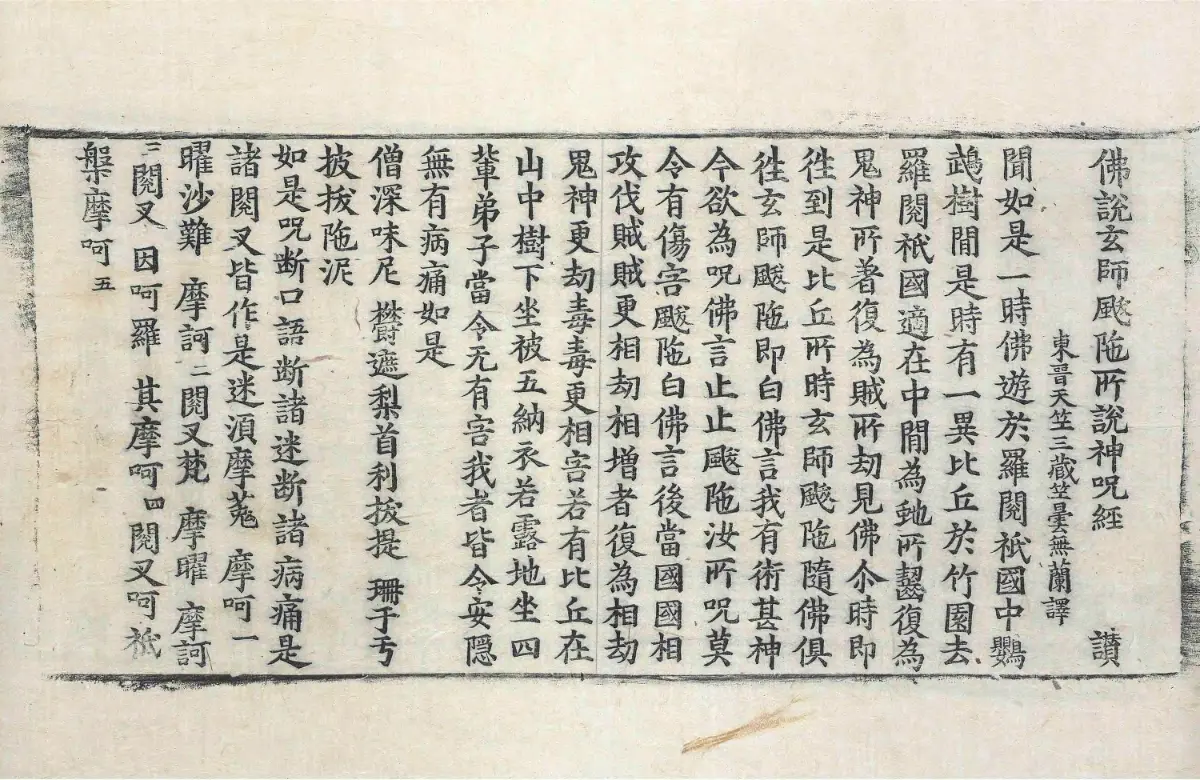 佛說玄師颰陁所說神呪經　讃
東晉天竺三藏竺曇無蘭譯
聞如是一時佛遊於羅閱祇國中鸚
鵡樹間是時有一異比丘於竹園去
羅閱祇國適在中間為虵所齧復為
鬼神所著復為賊所劫見佛尒時即
徃到是比丘所時玄師颰陁隨佛俱
徃玄師颰陁即白佛言我有術甚神
今欲為呪佛言止止颰陁汝所呪莫
令有傷害颰陁白佛言後當國國相
攻伐賊賊更相劫相增者復為相劫
鬼神更劫毒毒更相害若有比丘在
山中樹下坐被五納衣若露地坐四
輩弟子當令无有害我者皆令安隱
無有病痛如是
僧深味尼　欝遮梨首利拔提　珊于亐
披拔陁泥
如是呪断口語断諸迷断諸病痛是
諸閱叉皆作是迷湏摩菟　摩呵一
曜沙難　摩訶二閱叉梵　摩曜　摩訶
三閱叉　因呵羅　其摩呵四閱叉呵祇
槃摩呵五